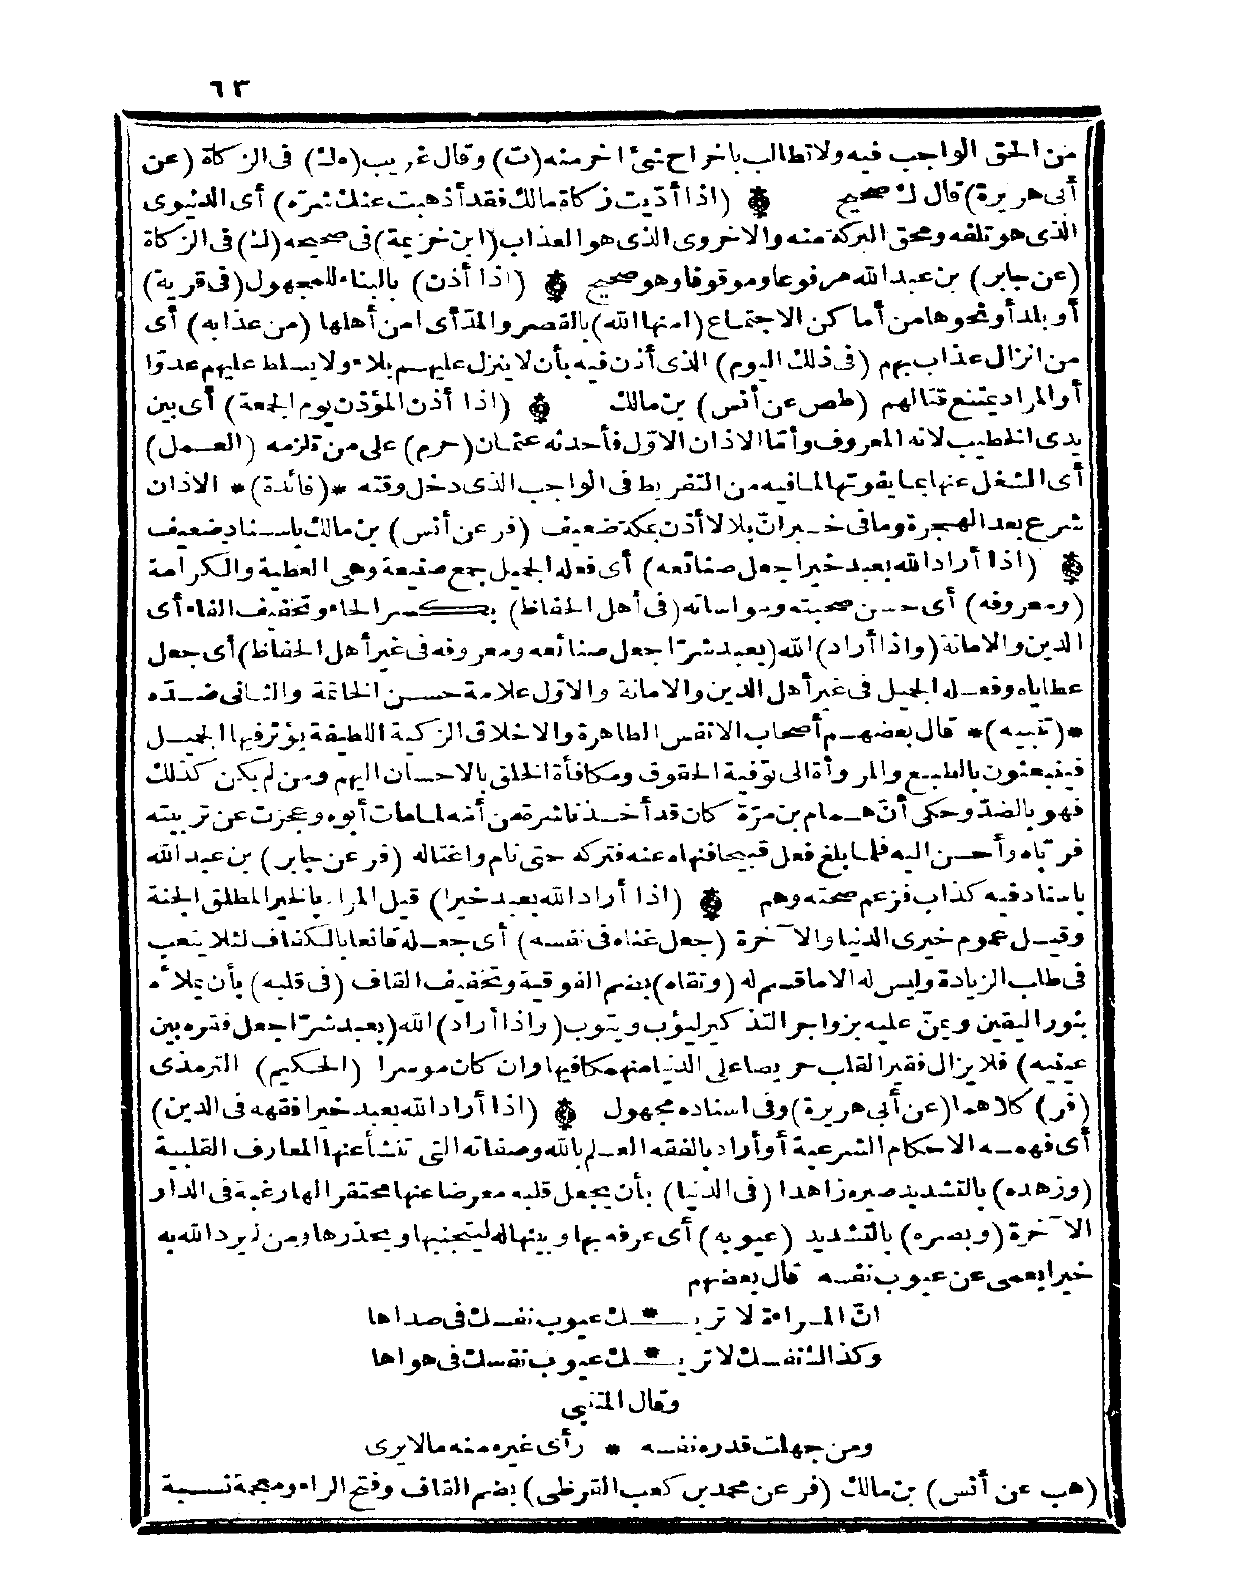 ٦٣
من الحق الواجب فيه ولا تطالب باخراج شئ اخر منه (ت) وقال غريب (ه ك) فى الزكاة (عن
أبى هريرة) قال ك صحيح (اذا أديت زكاة مالك فقد أذهبت عنك شره) أى الدنيوى
الذى هو تلفه ومحق البركة منه والاخروى الذى هو العذاب (ابن خزيمة) فى صحيحه (ك) فى الزكاة
(عن جابر) بن عبد الله مرفوعا وموقوفا وهو صحيح (اذا أذن) بالبناء للمجهول (فى قرية)
أو بلد أو نحوها من أماكن الاجتماع (امنها الله) بالقصر والمد أى امن أهلها (من عذابه) أى
من انزال عذاب بهم (فى ذلك اليوم) الذى أذن فيه بأن لا ينزل عليهم بلاء ولا يسلط عليهم عدوا
أو المراد يمتنع قتالهم (طص عن أنس) بن مالك (اذا أذن المؤذن يوم الجمعة) أى بين
يدى الخطيب لانه المعروف وأما الاذان الاول فأحدثه عثمان (حرم) على من تلزمه (العمل)
أى الشغل عنها بما يفوتها لما فيه من التفريط فى الواجب الذى دخل وقته *(فائدة)* الاذان
شرع بعد الهجرة وما فى خبر ان بلالا أذن بمكة ضعيف (فر عن أنس) بن مالك باسناد ضعيف
(اذا أراد الله بعبد خيرا جعل صنائعه) أى فعله الجميل جمع صنيعة وهى العطية والكرامة
(ومعروفه) أى حسن صحبته ومواساته (فى أهل الحفاظ) بكسر الحاء وتخفيف الفاء أى
الدين والامانة (واذا أراد) الله (بعبد شرا جعل صنائعه ومعروفه فى غير أهل الحفاظ) أى جعل
عطاياه وفعله الجميل فى غير أهل الدين والامانة والاول علامة حسن الخاتمة والثانى ضده
*(تنبيه)* قال بعضهم أصحاب الانفس الطاهرة والاخلاق الزكية اللطيفة يؤثر فيها الجميل
فينبعثون بالطبع والمروأة الى توفية الحقوق ومكافأة الخلق بالاحسان اليهم ومن لم يكن كذلك
فهو بالضد وحكى أن همام بن مرة كان قد أخذ ناشرة من أمه لما مات أبوه وعجزت عن تربيته
فرباه وأحسن اليه فلما بلغ فعل قبيحا فنهاه عنه فتركه حتى نام واغتاله (فر عن جابر) بن عبد الله
باسناد فيه كذاب فزعم صحته وهم (اذا أراد الله بعبد خيرا) قيل المراد بالخير المطلق الجنة
وقيل عموم خيرى الدنيا والآخرة (جعل غناه فى نفسه) أى جعله قانعا بالكفاف لئلا يتعب
فى طلب الزيادة وليس له الا ما قسم له (وتقاه) بضم الفوقية وتخفيف القاف (فى قلبه) بأن يملأه
بنور اليقين ويمن عليه بزواجر التذكير ليؤب ويتوب (واذا أراد) الله (بعبد شرا جعل فقره بين
عينيه) فلا يزال فقير القلب حريصا على الدنيا منهمكا فيها وان كان موسرا (الحكيم) الترمذى
(فر) كلاهما (عن أبى هريرة) وفى اسناده مجهول (اذا أراد الله بعبد خيرا فقهه فى الدين)
أى فهمه الاحكام الشرعية أو أراد بالفقه العلم بالله وصفاته التى تنشأ عنها المعارف القلبية
(وزهده) بالتشديد صيره زاهدا (فى الدنيا) بأن يجعل قلبه معرضا عنها محتقرا لها رغبة فى الدار
الآخرة (وبصره) بالتشديد (عيوبه) أى عرفه بها وبينها له ليتجنبها ويحذرها ومن لم يرد الله به
خيرا يعمى عن عيوب نفسه قال بعضهم
ان المراءة لا تريـ * ـك عيوب نفسك فى صداها
وكذلك نفسك لا تريـ * ـك عيوب نفسك فى هواها
وقال المتنبى
ومن جهلت قدره نفسه * رأى غيره منه ما لا يرى
(هب عن أنس) بن مالك (فر عن محمد بن كعب القرظى) بضم القاف وفتح الراء ومعجمة نسبة